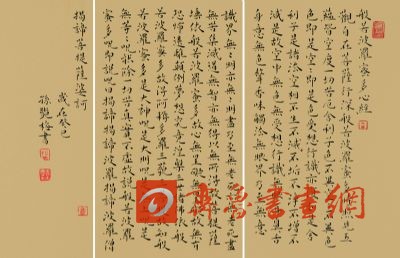 般若波羅蜜多心經
觀自在菩薩行深般若波羅蜜多時照見五
蘊皆空度一切苦厄舍利子色不異空空不異
色色即是空空即是色受想行識亦復如是舍
利子是諸法空相不生不滅不垢不淨不增不
減是故空中無色無受想行識無眼耳鼻舌
身意無色聲香味觸法無眼界乃至無意
識界無無明亦無無明盡乃至無老死亦無老死盡
無苦集滅道無智亦無得以無所得故菩提薩
埵依般若波羅蜜多故心無罣礙無罣礙故無有
恐怖遠離顛倒夢想究竟涅槃三世諸佛依般
若波羅蜜多故得阿耨多羅三藐三菩提故知般
若波羅蜜多是大神咒是大明咒是無上咒是
無等等咒能除一切苦真實不虛故說般若波羅
蜜多咒即說咒曰揭諦揭諦波羅揭諦波羅僧
揭諦菩提薩婆訶
歲在癸巳
孫艷梅書
齊魯書畫網